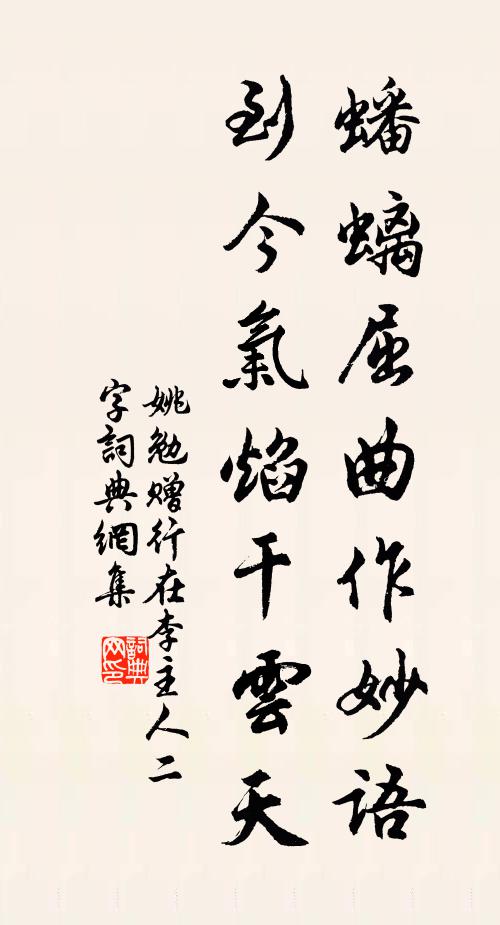 蟠螭屈曲作妙語
到今氣焰干雲天
姚勉贈行在李主人二
字詞典網集
詞典網印